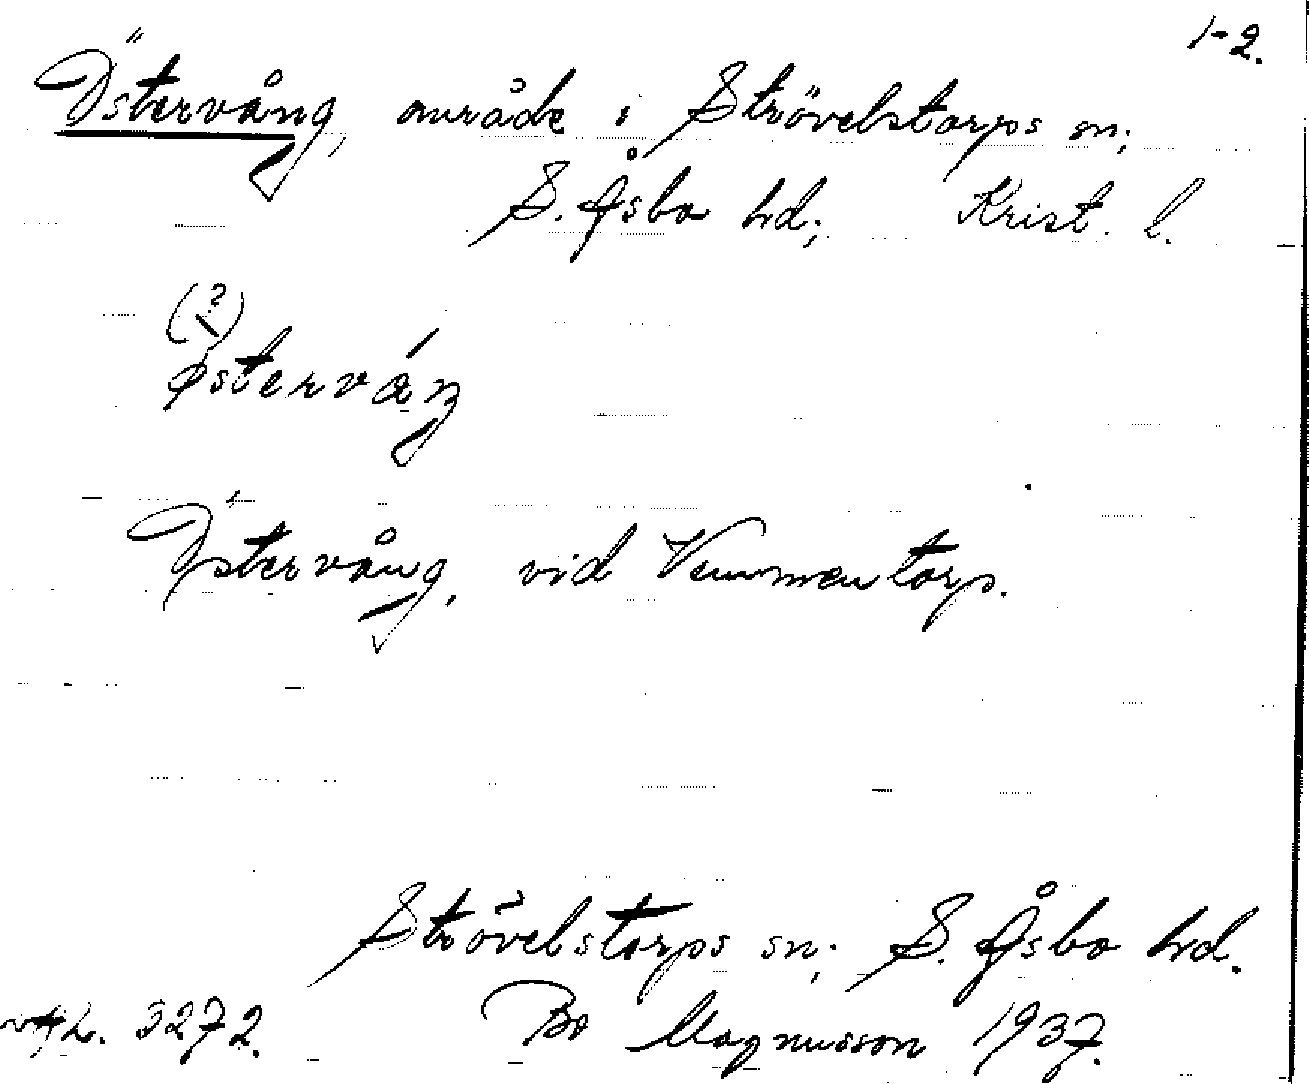 1-2.
Östervång, område i Strövelstorps sn;
S. Åsbo hd; Krist. l.
(?)
Östervång, vid Vemmentorp.
Strövelstorps sn; S. Åsbo hd.
3272. Bo Magnusson 1937.